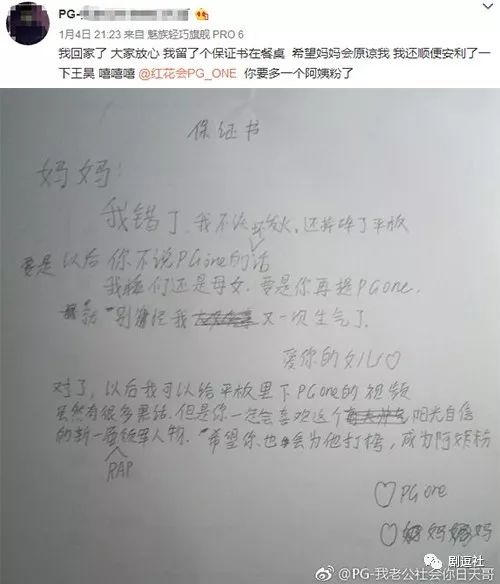 PG-
1月4日 21:23 来自 魅族轻巧旗舰 PRO 6
我回家了 大家放心 我留了个保证书在餐桌 希望妈妈会原谅我 我还顺便安利了一
下王昊 嘻嘻嘻 @红花会PG_ONE 你要多一个阿姨粉了
保证书
妈妈:
我错了,我不该 发火,还摔碎了平板
要是以后你不说PGone的话
我 们还是母女.要是你再提PGone.
别 怪我 又一次生气了.
爱你的女儿♡
对了,以后我可以给平板里下PGone的视频
虽然有很多黑话.但是你一定会喜欢这个 阳光自信
的新一 人物."希望你也会为他打榜,成为阿姨粉
RAP
♡PGone
♡ 妈妈
@PG-我老公社会你日天哥
剧逗社